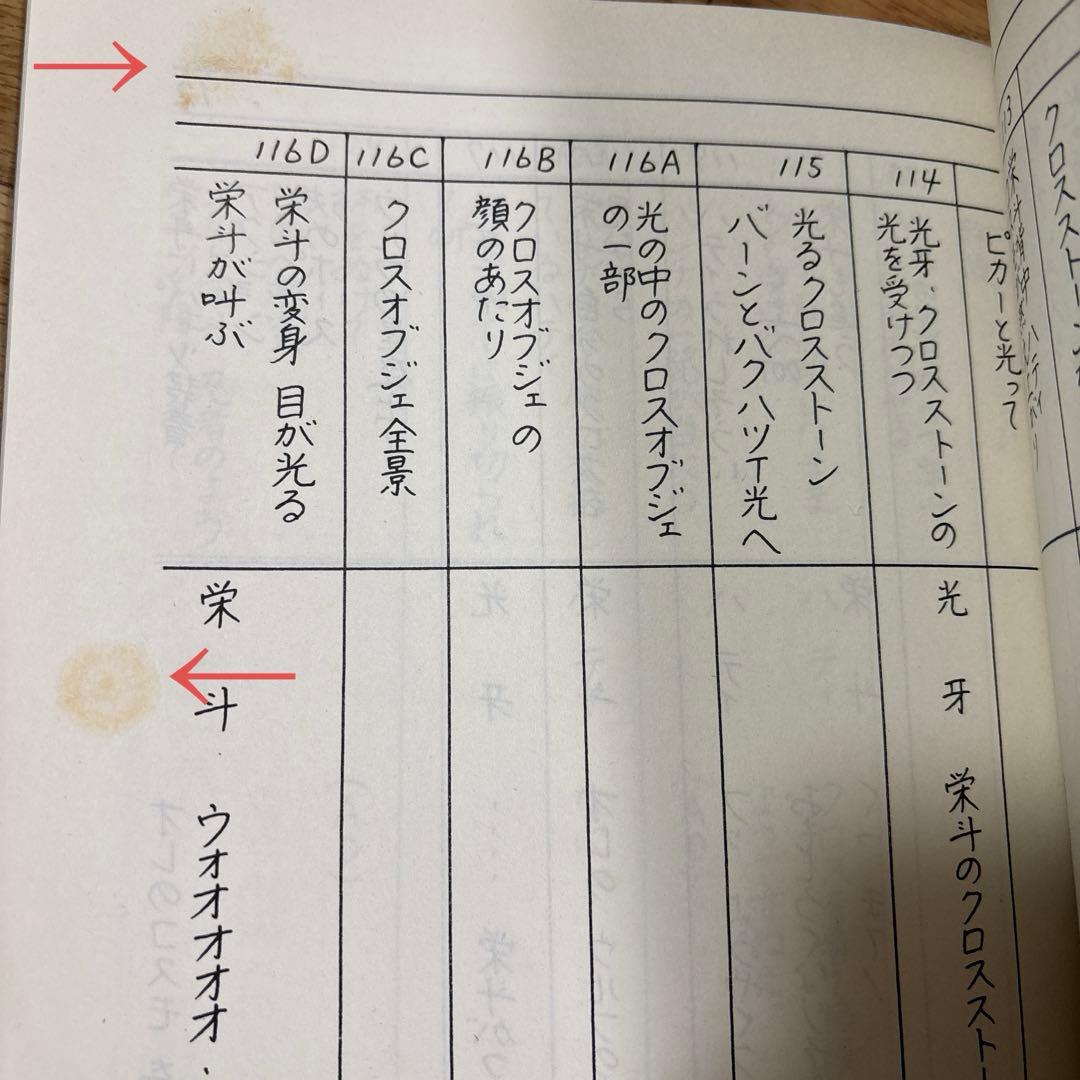 クロスストーン
ピカーと光って
114
光牙、クロスストーンの
光を受けつつ
光 牙 栄斗のクロススト
115
光るクロスストーン
バーンとバクハツT光へ
116A
光の中のクロスオブジェ
の一部
116B
クロスオブジェの
顔のあたり
116C
クロスオブジェ全景
116D
栄斗の変身 目が光る
栄斗が叫ぶ
栄 斗 ウオオオオオ